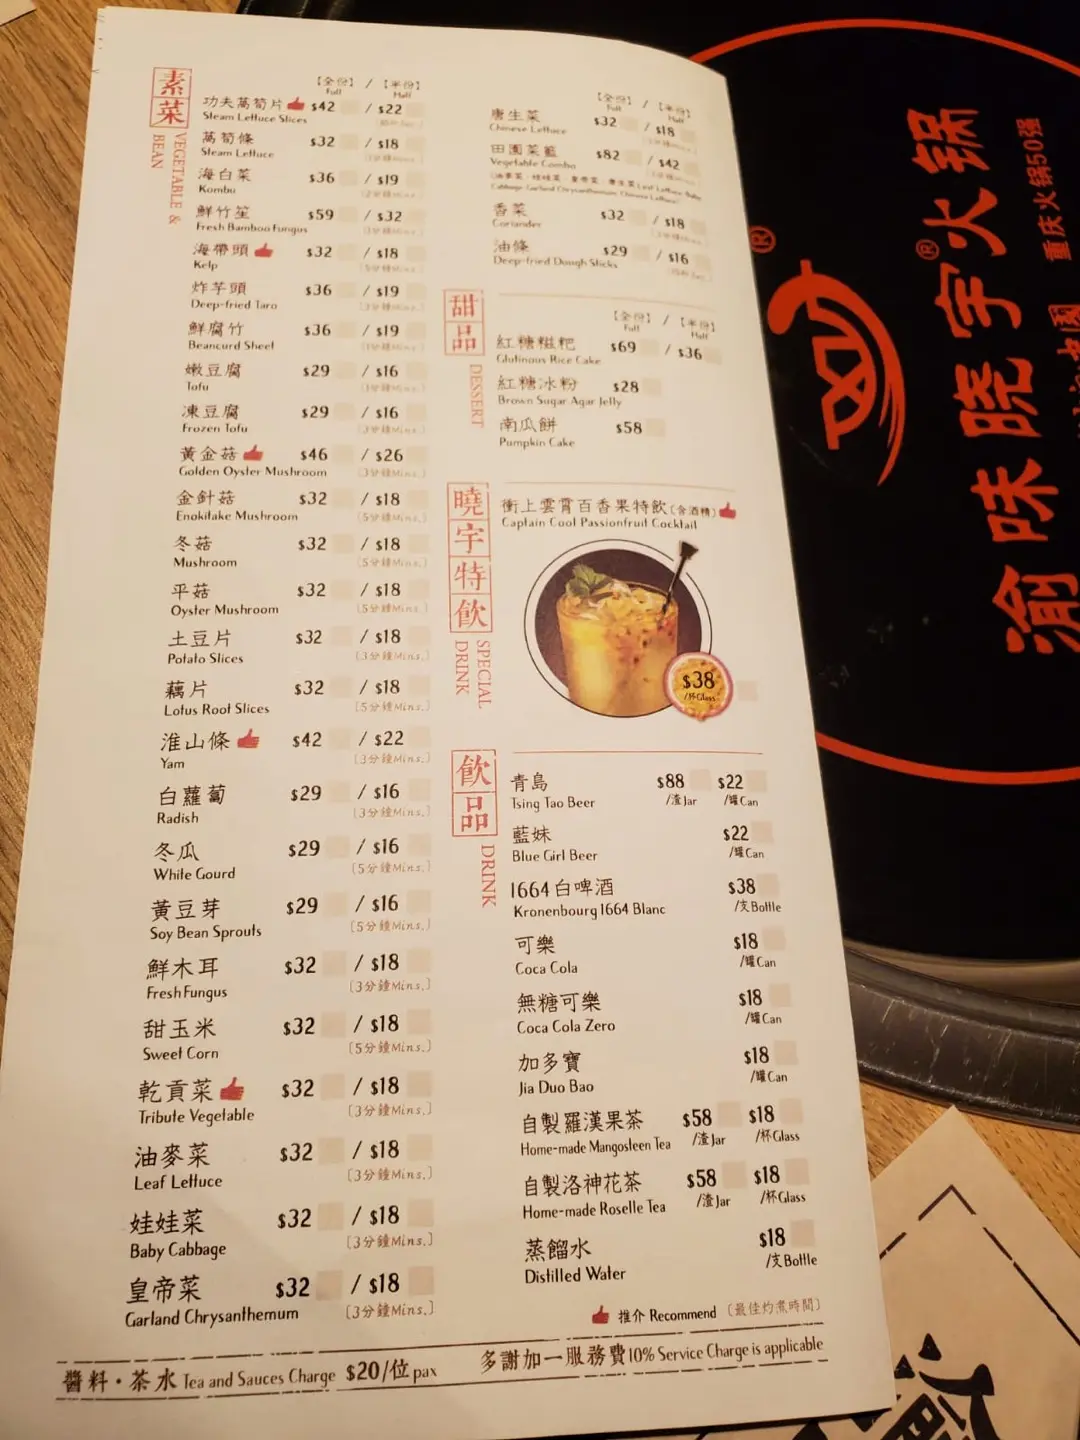 素菜
VEGETABLE & BEAN
【全份】 / 【半份】
Full Half
功夫萵筍片 $42 / $22
Steam Lettuce Slices
萵筍條 $32 / $18
Steam Lettuce
海白菜 $36 / $19
Kombu
鮮竹笙 $59 / $32
Fresh Bamboo Fungus
海帶頭 $32 / $18
Kelp
炸芋頭 $36 / $19
Deep-fried Taro
鮮腐竹 $36 / $19
Beancurd Sheet
嫩豆腐 $29 / $16
Tofu
凍豆腐 $29 / $16
Frozen Tofu
黃金菇 $46 / $26
Golden Oyster Mushroom (3分鐘Mins.)
金針菇 $32 / $18
Enokitake Mushroom (5分鐘Mins.)
冬菇 $32 / $18
Mushroom (5分鐘Mins.)
平菇 $32 / $18
Oyster Mushroom (5分鐘Mins.)
土豆片 $32 / $18
Potato Slices (3分鐘Mins.)
藕片 $32 / $18
Lotus Root Slices (5分鐘Mins.)
淮山條 $42 / $22
Yam (3分鐘Mins.)
白蘿蔔 $29 / $16
Radish (3分鐘Mins.)
冬瓜 $29 / $16
White Gourd (5分鐘Mins.)
黃豆芽 $29 / $16
Soy Bean Sprouts (5分鐘Mins.)
鮮木耳 $32 / $18
Fresh Fungus (3分鐘Mins.)
甜玉米 $32 / $18
Sweet Corn (5分鐘Mins.)
乾貢菜 $32 / $18
Tribute Vegetable (3分鐘Mins.)
油麥菜 $32 / $18
Leaf Lettuce (3分鐘Mins.)
娃娃菜 $32 / $18
Baby Cabbage (3分鐘Mins.)
皇帝菜 $32 / $18
Garland Chrysanthemum (3分鐘Mins.)
【全份】 / 【半份】
Full Half
唐生菜 $32 / $18
Chinese Lettuce
田園菜籃 $82 / $42
Vegetable Combo
香菜 $32 / $18
Coriander
油條 $29 / $16
Deep-fried Dough Sticks
甜品
DESSERT
【全份】 / 【半份】
Full Half
紅糖糍粑 $69 / $36
Glutinous Rice Cake
紅糖冰粉 $28
Brown Sugar Agar Jelly
南瓜餅 $58
Pumpkin Cake
曉宇特飲
SPECIAL DRINK
衝上雲霄百香果特飲(含酒精)
Captain Cool Passionfruit Cocktail
$38
/杯Glass
飲品
DRINK
青島 $88 $22
Tsing Tao Beer /渣Jar /罐Can
藍妹 $22
Blue Girl Beer /罐Can
1664白啤酒 $38
Kronenbourg 1664 Blanc /支Bottle
可樂 $18
Coca Cola /罐Can
無糖可樂 $18
Coca Cola Zero /罐Can
加多寶 $18
Jia Duo Bao /罐Can
自製羅漢果茶 $58 $18
Home-made Mangosteen Tea /渣Jar /杯Glass
自製洛神花茶 $58 $18
Home-made Roselle Tea /渣Jar /杯Glass
蒸餾水 $18
Distilled Water /支Bottle
推介 Recommend (最佳灼煮時間)
醬料・茶水 Tea and Sauces Charge $20/位pax
多謝加一服務費10% Service Charge is applicable
渝味曉宇®火锅
重庆火锅50强